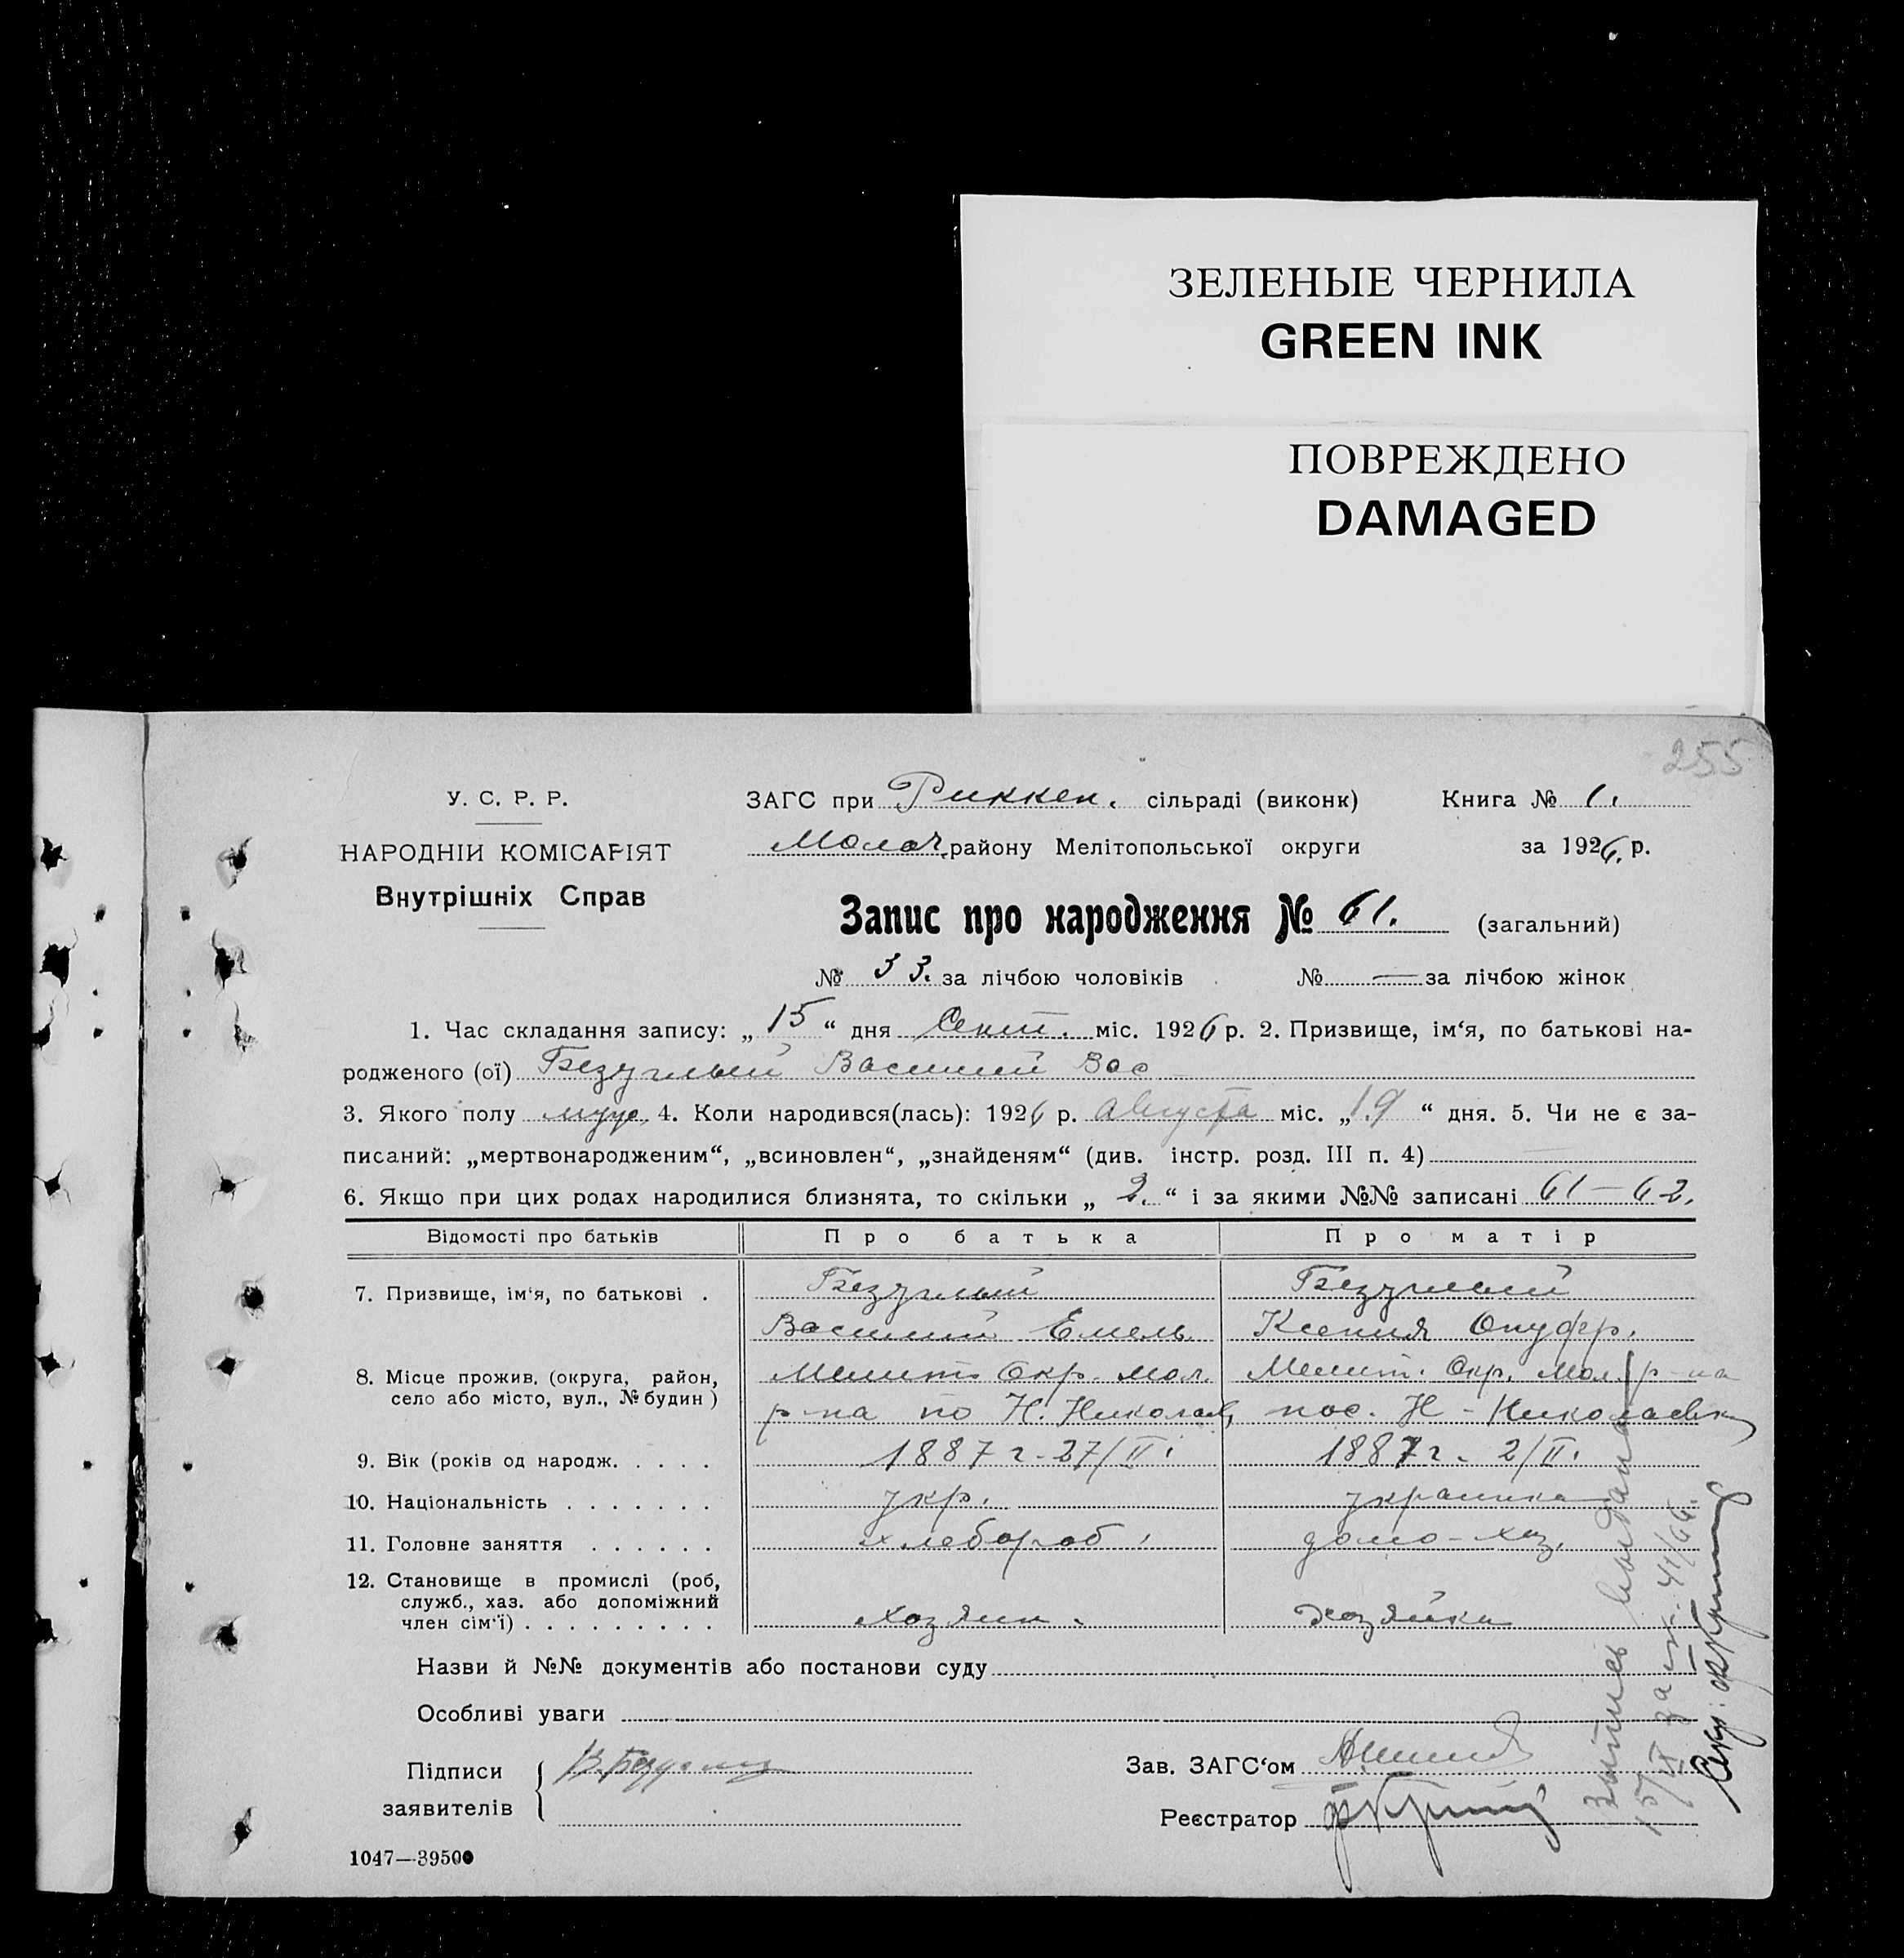 ЗЕЛЕНЫЕ ЧЕРНИЛА
GREEN INK
ПОВРЕЖДЕНО
DAMAGED
255
У. С. Р. Р.
НАРОДНІЙ КОМІСАРІЯТ
Внутрішніх Справ
ЗАГС при Риккен. сільраді (виконк) Книга № 1.
Молоч. району Мелітопольської округи за 1926. р.
Запис про народження № 61. (загальний)
№ 33. за лічбою чоловіків № — за лічбою жінок
1. Час складання запису: „15“ дня Сент. міс. 1926 р. 2. Призвище, ім‘я, по батькові на-
родженого (ої) Безуглый Василий Вас
3. Якого полу муж. 4. Коли народився(лась): 1926 р. Августа міс. „19“ дня. 5. Чи не є за-
писаний: „мертвонародженим“, „всиновлен“, „знайденям“ (див. інстр. розд. III п. 4)
6. Якщо при цих родах народилися близнята, то скільки „2.“ і за якими №№ записані 61—62.
Відомості про батьків Про батька Про матір
7. Призвище, ім‘я, по батькові . Безуглый Безуглый
Василий Емель Ксения Онуфр.
8. Місце прожив. (округа, район, Мелит. Окр. Мол. Мелит. Окр. Мол. р-на
село або місто, вул., № будин) р-на по Н. Николаев, пос. Н - Николаевка
9. Вік (років од народж. . . . . 1887 г - 27/II. 1887 г. 2/II.
10. Національність . . . . . . . укр. украинка
11. Головне заняття . . . . . . хлебороб. домо-хоз.
12. Становище в промислі (роб,
служб., хаз. або допоміжний
член сім‘ї) . . . . . . . . . хозяин. хозяйка
Назви й №№ документів або постанови суду
Особливі уваги
Підписи
заявителів
В. Безуглый
Зав. ЗАГС‘ом
Реєстратор
1047—39500
выдана
15/IX за № 41/66.